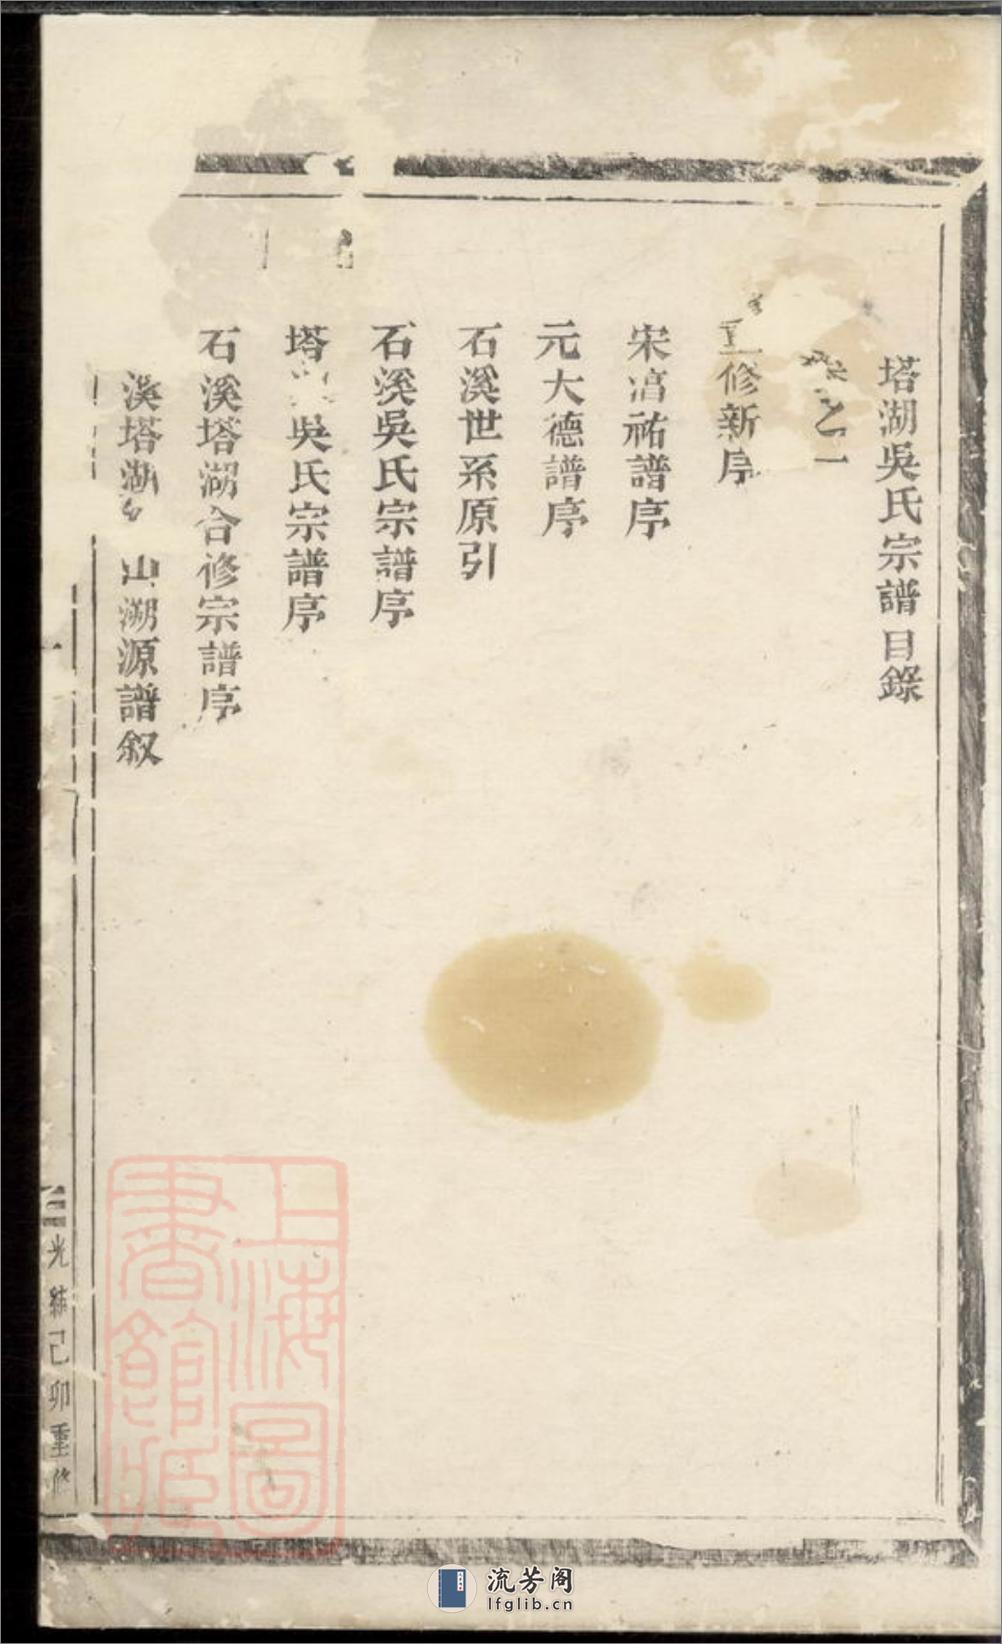 塔湖吳氏宗譜目錄
之一
修新序
宋祐譜序
元大德譜序
石溪世系原引
石溪吳氏宗譜序
塔吳氏宗譜序
石溪塔湖合修宗譜序
溪塔湖山溯源譜叙
光緒己卯重修
上海圖書館藏
流芳阁
lfglib.cn